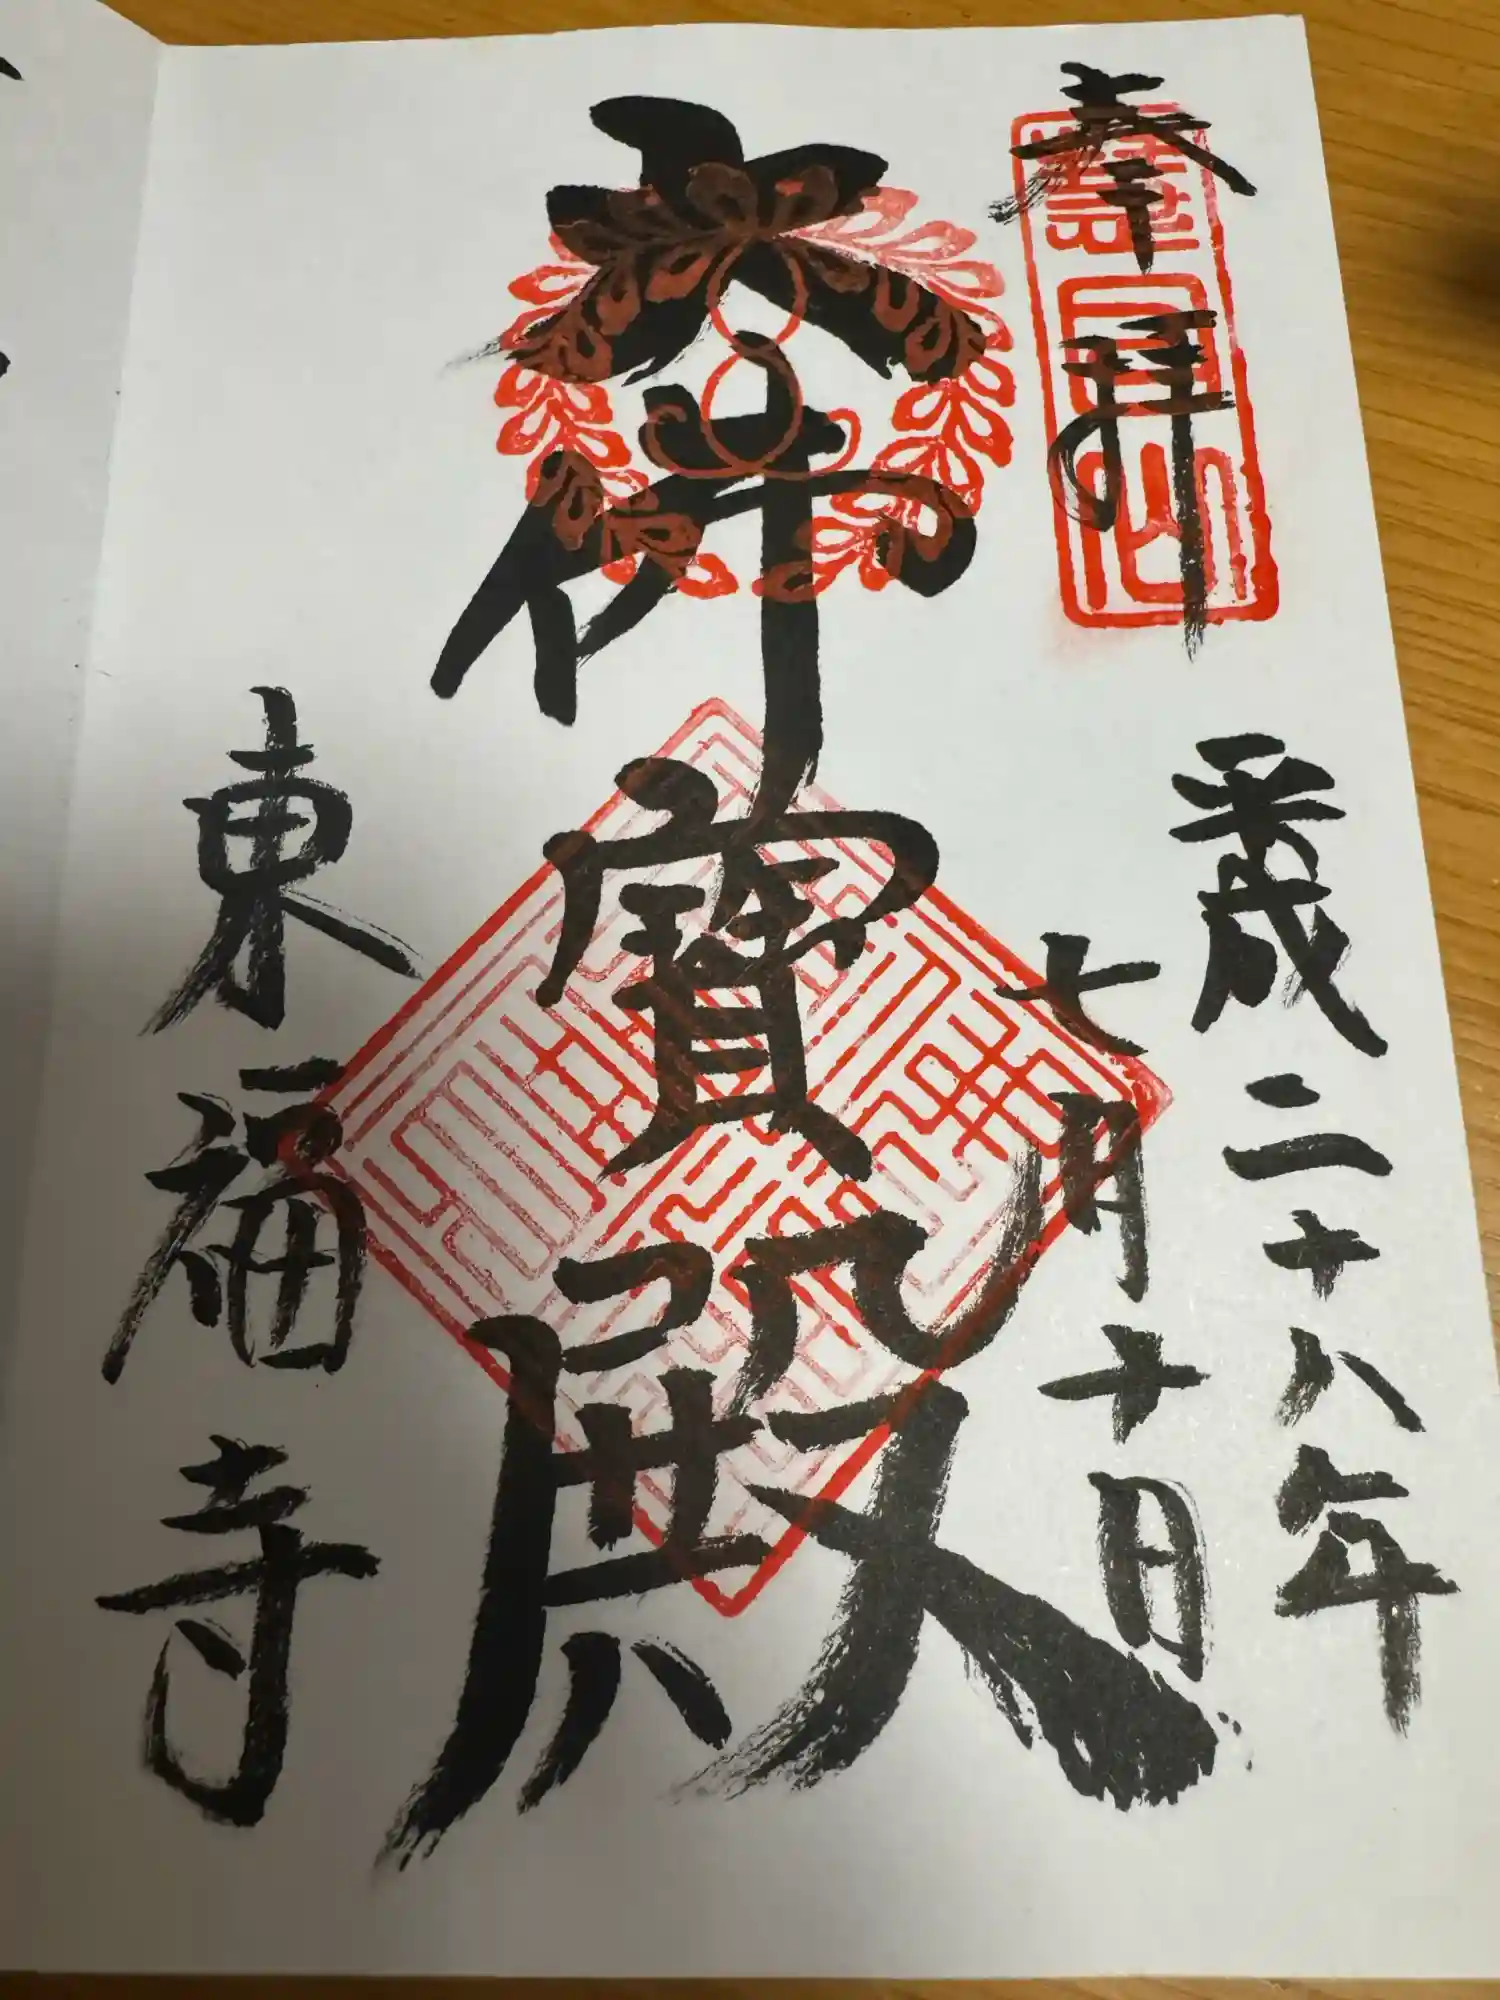 奉拝
平成二十八年
七月十日
大佛寶殿
東福寺